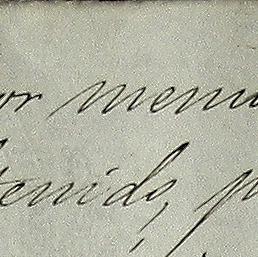 or menu
tenido, p